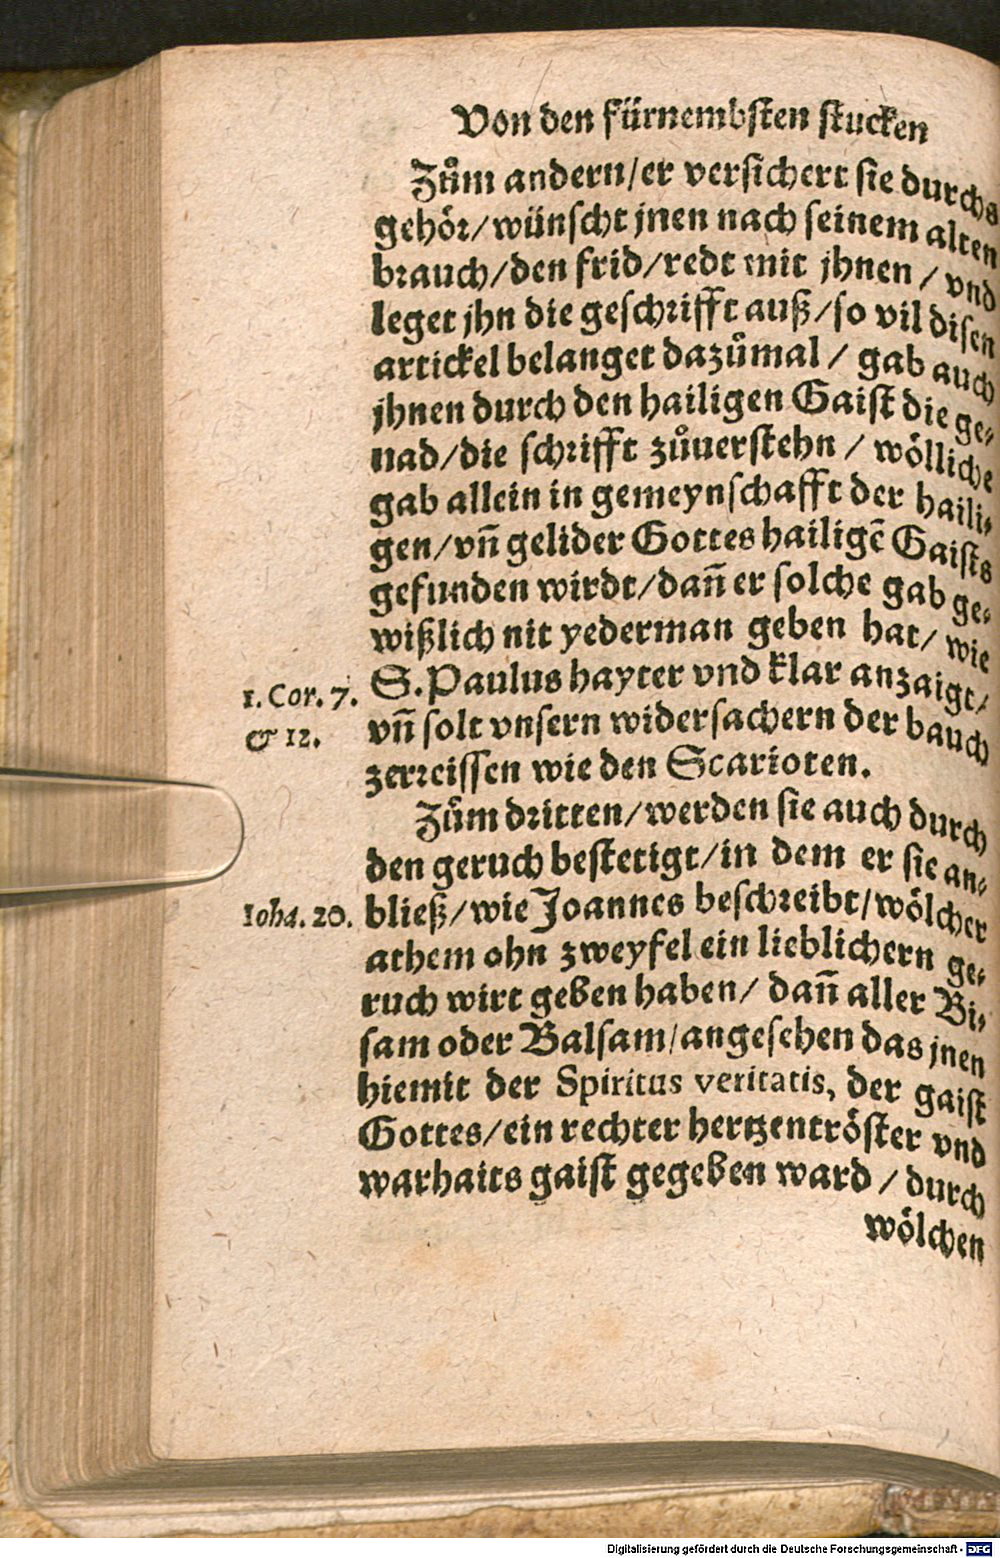 Von den fürnembsten stucken
Zům andern/er versichert sie durchs
gehör/wünscht jnen nach seinem alten
brauch/den frid/redt mit jhnen / vnd
leget jhn die geschrifft auß/so vil disen
artickel belanget dazůmal / gab auch
jhnen durch den hailigen Gaist die ge⸗
nad/die schrifft zůuerstehn / wölliche
gab allein in gemeynschafft der haili⸗
gen/vñ gelider Gottes hailigẽ Gaists
gefunden wirdt/dañ er solche gab ge⸗
wißlich nit yederman geben hat/ wie
1. Cor. 7. S. Paulus hayter vnd klar anzaigt/
& 12. vñ solt vnsern widersachern der bauch
zerreissen wie den Scarioten.
Zům dritten/werden sie auch durch
den geruch bestetigt/in dem er sie an⸗
Ioha. 20. bließ/wie Joannes beschreibt/wölcher
athem ohn zweyfel ein lieblichern ge⸗
ruch wirt geben haben/ dañ aller Bi⸗
sam oder Balsam/angesehen das jnen
hiemit der Spiritus veritatis, der gaist
Gottes/ein rechter hertzentröster vnd
warhaits gaist gegeben ward / durch
wölchen
Digitalisierung gefördert durch die Deutsche Forschungsgemeinschaft - DFG